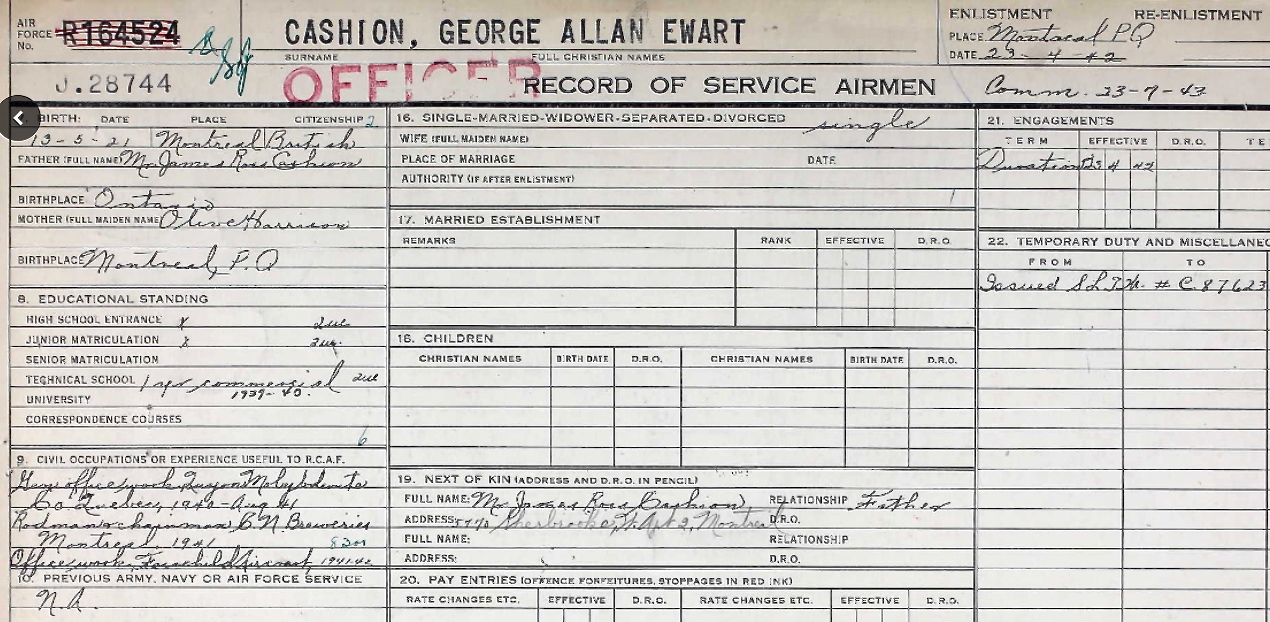 AIR FORCE No. R164524
CASHION, GEORGE ALLAN EWART
SURNAME FULL CHRISTIAN NAMES
ENLISTMENT RE-ENLISTMENT
PLACE Montreal P.Q
DATE 23-4-42
J.28744
OFFICER
RECORD OF SERVICE AIRMEN
Comm. 23-7-43
BIRTH: DATE PLACE CITIZENSHIP 2
13-5-21 Montreal British
FATHER (FULL NAME) Mr James Ross Cashion
BIRTHPLACE Ontario
MOTHER (FULL MAIDEN NAME) Olive Harrison
BIRTHPLACE Montreal, P.Q
8. EDUCATIONAL STANDING
HIGH SCHOOL ENTRANCE x
JUNIOR MATRICULATION x
SENIOR MATRICULATION
TECHNICAL SCHOOL 1 yr commercial
1939-40.
UNIVERSITY
CORRESPONDENCE COURSES
6
9. CIVIL OCCUPATIONS OR EXPERIENCE USEFUL TO R.C.A.F.
Gen office work, Quyon Molybdenite
Co. Quebec, 1940-Aug 41
Rodman & chainman C.N. Breweries
Montreal 1941
Office work, Fairchild Aircraft 1941-42
10. PREVIOUS ARMY, NAVY OR AIR FORCE SERVICE
N.A.
16. SINGLE-MARRIED-WIDOWER-SEPARATED-DIVORCED single
WIFE (FULL MAIDEN NAME)
PLACE OF MARRIAGE DATE
AUTHORITY (IF AFTER ENLISTMENT)
17. MARRIED ESTABLISHMENT
REMARKS RANK EFFECTIVE D.R.O.
18. CHILDREN
CHRISTIAN NAMES BIRTH DATE D.R.O. CHRISTIAN NAMES BIRTH DATE D.R.O.
19. NEXT OF KIN (ADDRESS AND D.R.O. IN PENCIL)
FULL NAME: Mr James Ross Cashion RELATIONSHIP Father
ADDRESS: Sherbrooke, W. Apt 2, Montreal D.R.O.
FULL NAME: RELATIONSHIP
ADDRESS: D.R.O.
20. PAY ENTRIES (OFFENCE FORFEITURES, STOPPAGES IN RED INK)
RATE CHANGES ETC. EFFECTIVE D.R.O. RATE CHANGES ETC. EFFECTIVE D.R.O.
21. ENGAGEMENTS
TERM EFFECTIVE D.R.O. TE
Duration 23 4 42
22. TEMPORARY DUTY AND MISCELLANEO
FROM TO
Issued # C 87623